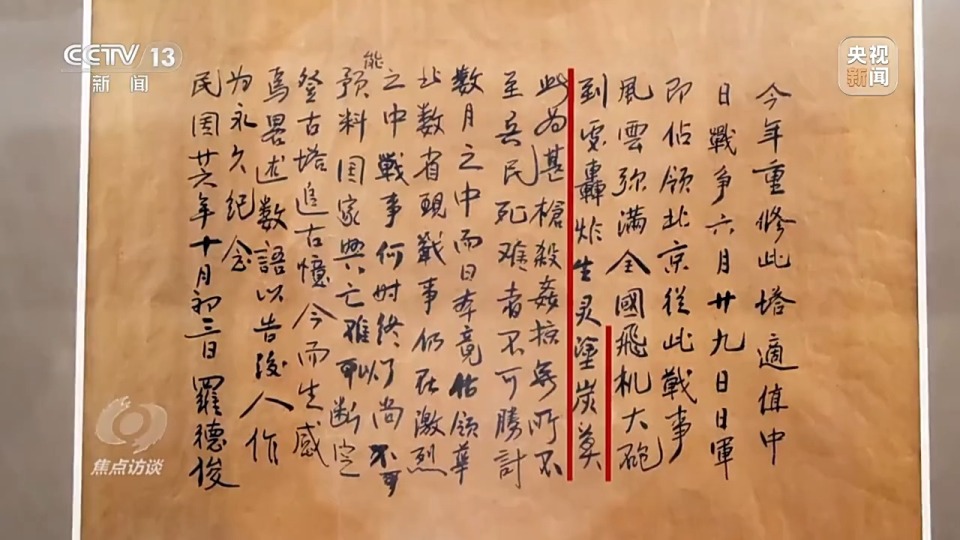 CCTV 13
新闻
央视
新闻
今年重修此塔適值中
日戰争六月廿九日日軍
即佔領北京從此戰事
風雲弥滿全國飛机大砲
到處轟炸生灵塗炭莫
此為甚槍殺姦掠無所不
至兵民死难者不可勝計
数月之中而日本竟佔領華
北数省現戰事仍在激烈
之中戰事何时終了尚不可
能預料国家興亡难以断定
登古塔追古憶今而生感
焉畧述数語以告後人作
为永久紀念
民国廿六年十月初三日羅德俊
焦点访谈